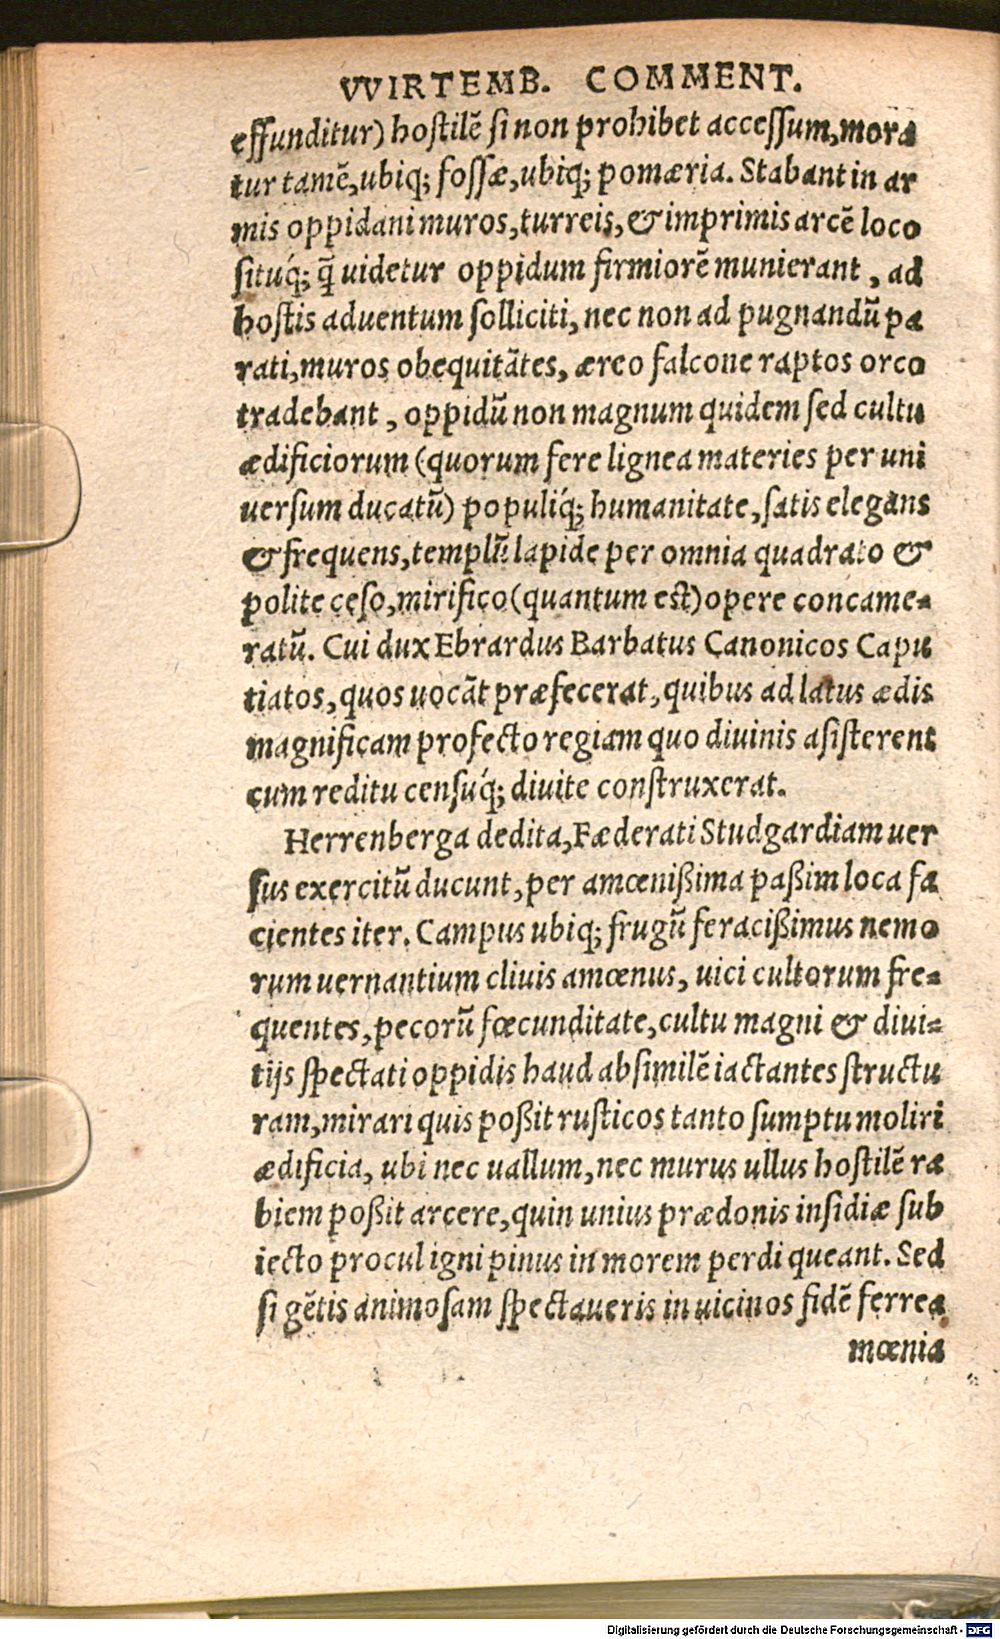 VVIRTEMB. COMMENT.
effunditur) hostilē si non prohibet accessum, mora
tur tamē, ubiq; fossæ, ubiq; pomæria. Stabant in ar
mis oppidani muros, turreis, & imprimis arcē loco
situq́; q̃ uidetur oppidum firmiorē munierant, ad
hostis aduentum solliciti, nec non ad pugnandū pa
rati, muros obequitātes, æreo falcone raptos orco
tradebant, oppidū non magnum quidem sed cultu
ædificiorum (quorum fere lignea materies per uni
uersum ducatū) populiq́; humanitate, satis elegans
& frequens, templū lapide per omnia quadrato &
polite cęso, mirifico (quantum est) opere concame-
ratū. Cui dux Ebrardus Barbatus Canonicos Capu
tiatos, quos uocāt præfecerat, quibus ad latus ædis
magnificam profecto regiam quo diuinis asisterent
cum reditu censuq́; diuite construxerat.
Herrenberga dedita, Fæderati Studgardiam uer
sus exercitū ducunt, per amœnißima paßim loca fa
cientes iter. Campus ubiq; frugū feracißimus nemo
rum uernantium cliuis amœnus, uici cultorum fre-
quentes, pecorū fœcunditate, cultu magni & diui-
tijs spectati oppidis haud absimilē iactantes structu
ram, mirari quis poßit rusticos tanto sumptu moliri
ædificia, ubi nec uallum, nec murus ullus hostilē ra
biem poßit arcere, quin unius prædonis insidiæ sub
iecto procul igni pinus in morem perdi queant. Sed
si gētis animosam spectaueris in uicinos fidē ferrea
mœnia
Digitalisierung gefördert durch die Deutsche Forschungsgemeinschaft - DFG